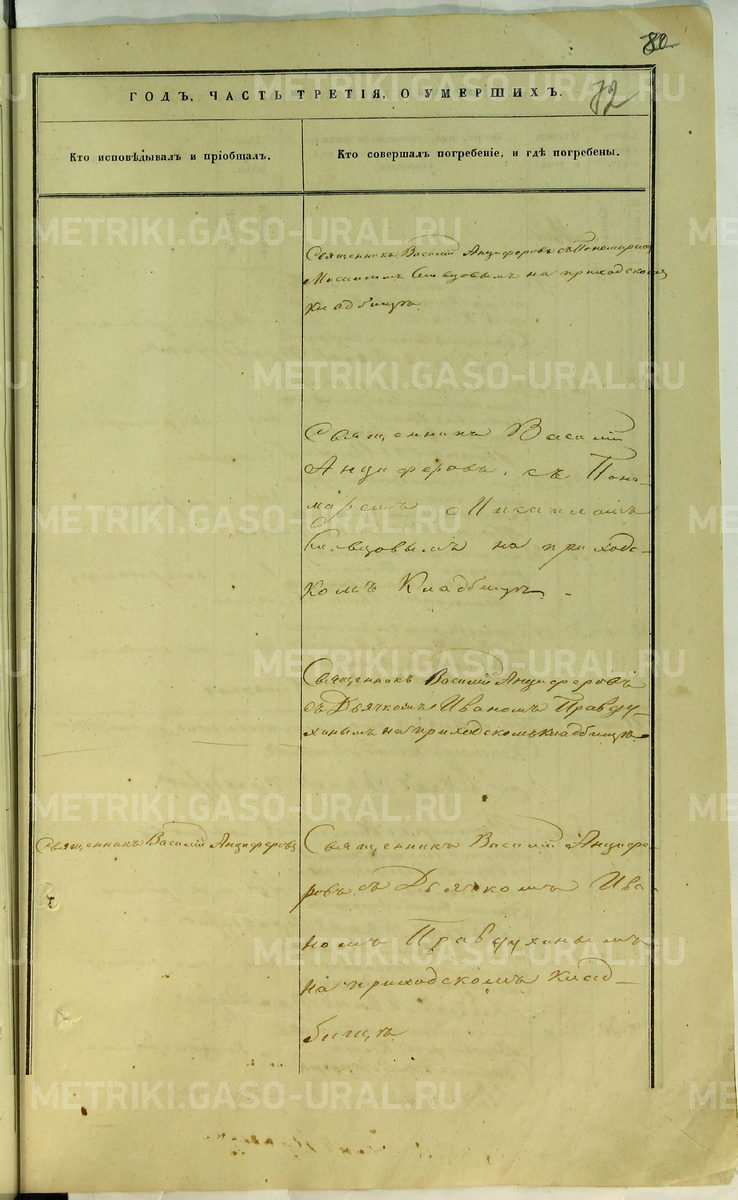 80
ГОДЪ, ЧАСТЬ ТРЕТІЯ, О УМЕРШИХЪ.
72
Кто исповѣдывалъ и пріобщалъ.
Кто совершалъ погребеніе, и гдѣ погребены.
Священникъ Василій Анциферовъ съ Пономаремъ
на приходскомъ
кладбищѣ.
Священникъ Василій
Анциферовъ, съ Поно-
маремъ
на приходс-
комъ Кладбищѣ.
Священникъ Василій Анциферовъ
съ Дьячкомъ Иваномъ Правду-
хинымъ на приходскомъ кладбищѣ.
Священникъ Василій Анциферовъ
Священникъ Василій Анцифе-
ровъ съ Дьячкомъ Ива-
номъ Правдухинымъ
на приходскомъ клад-
бищѣ
METRIKI.GASO-URAL.RU